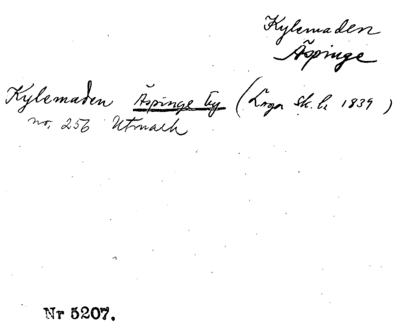 Kylemaden
Äspinge
Kylemaden Äspinge by (Laga Sk. h. 1839)
no. 256 Utmark
Nr 5207.